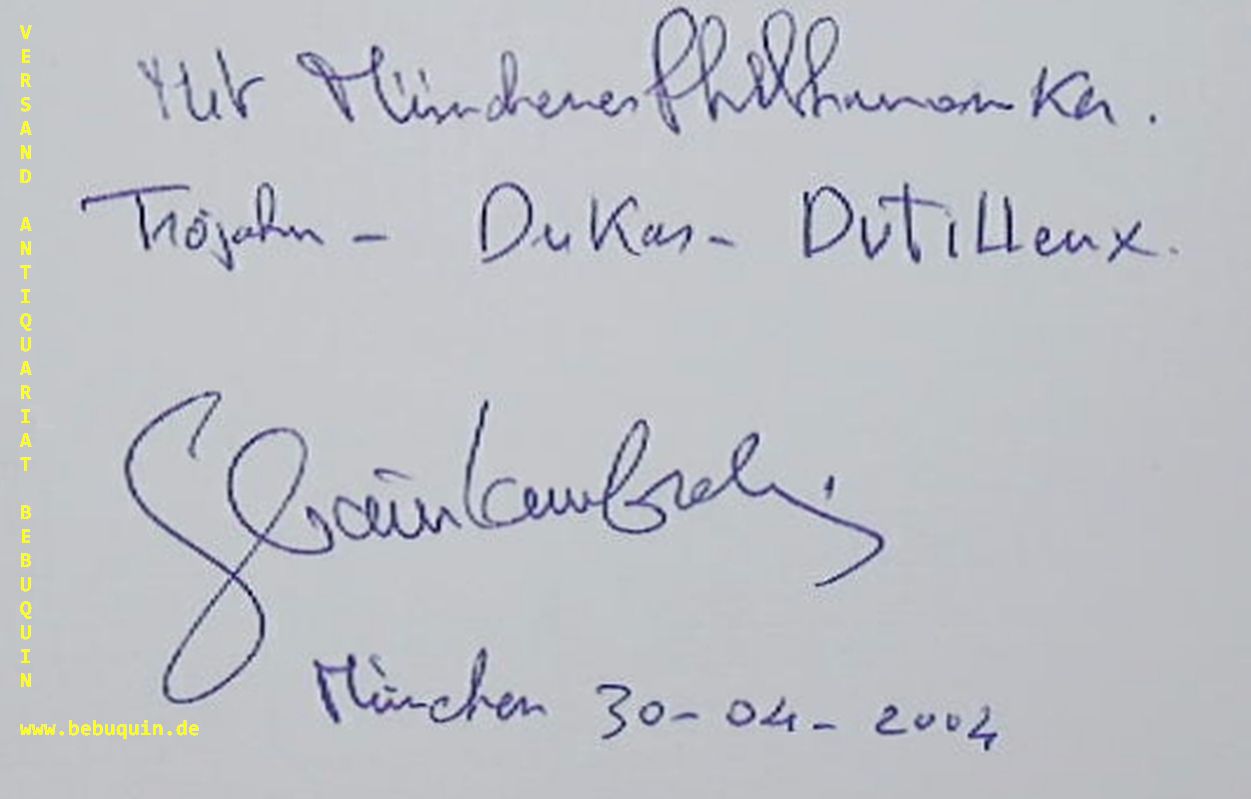 Mit Münchener Philharmoniker.
Trojahn - Dukas - Dutilleux.
Sylvain Cambreling
München 30-04-2004
VERSAND ANTIQUARIAT BEBUQUIN
www.bebuquin.de